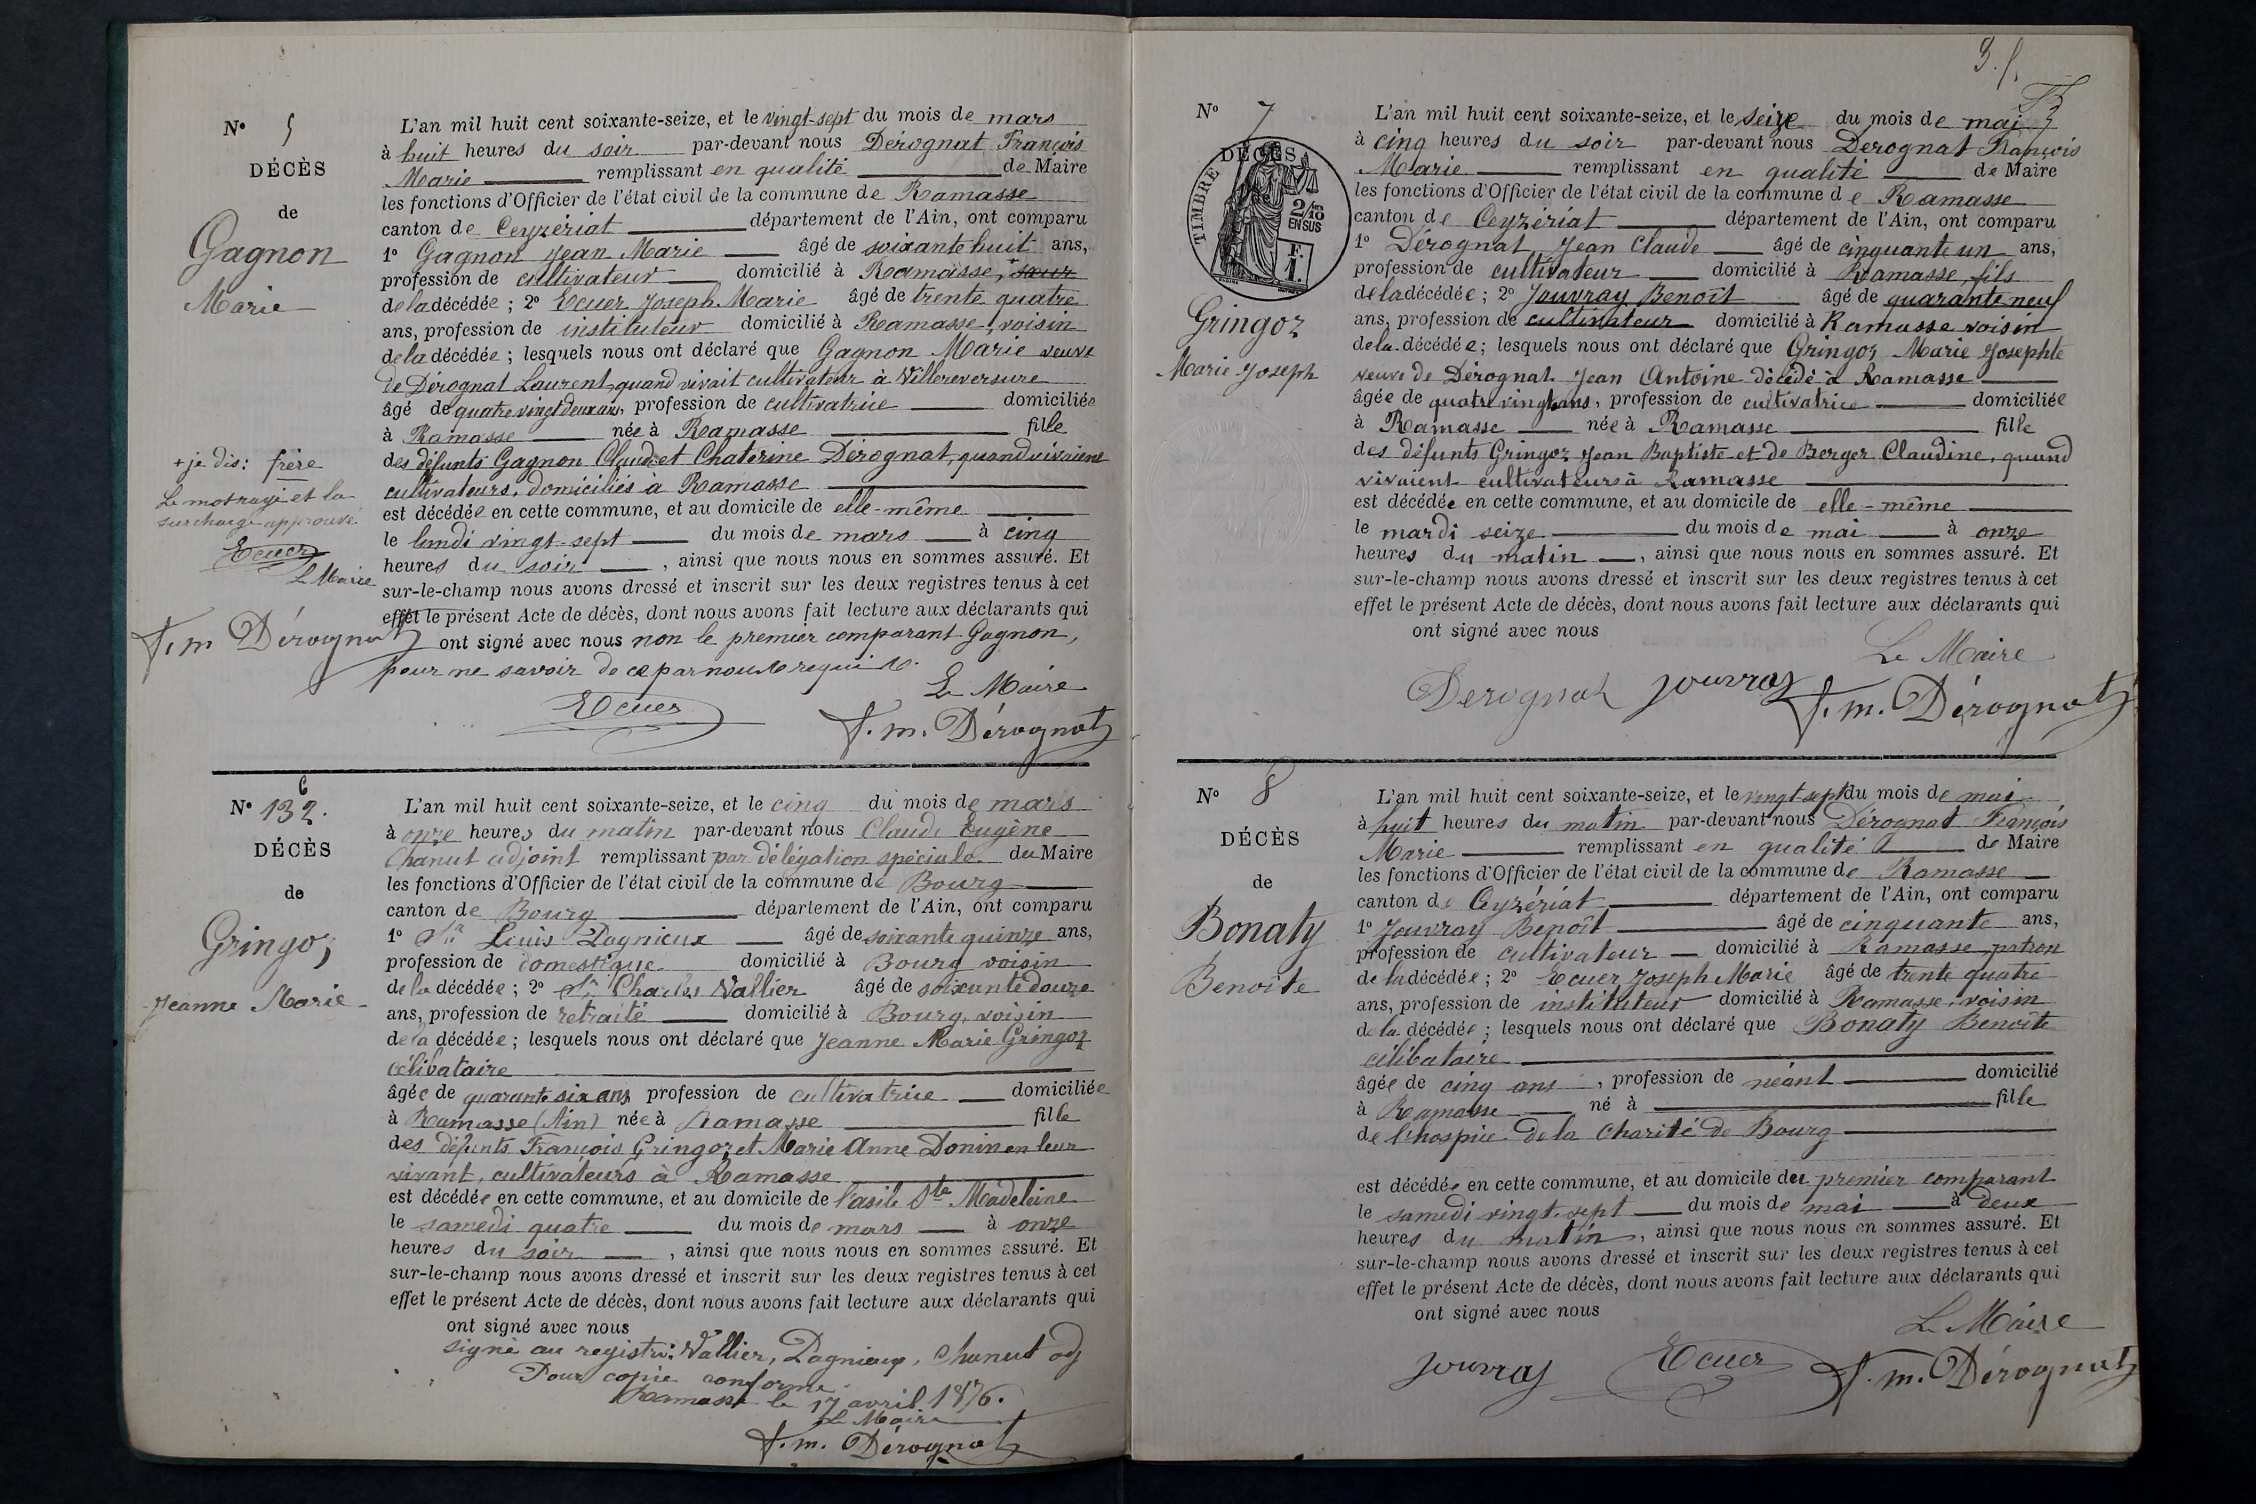 N° 5
DÉCÈS
de
Gagnon
Marie
+ je dis : frère
Le mot rayé et la
surcharge approuvé
Ecuer
Le Maire
F. m. Dérognat
L'an mil huit cent soixante-seize, et le vingt-sept du mois de mars
à huit heures du soir par-devant nous Dérognat François
Marie remplissant en qualité de Maire
les fonctions d'Officier de l'état civil de la commune de Ramasse
canton de Ceyzériat département de l'Ain, ont comparu
1° Gagnon Jean Marie âgé de soixante huit ans,
profession de cultivateur domicilié à Ramasse, + sœur
de la décédée ; 2° Ecuer Joseph Marie âgé de trente quatre
ans, profession de instituteur domicilié à Ramasse, voisin
de la décédée ; lesquels nous ont déclaré que Gagnon Marie veuve
de Dérognat Laurent, quand vivait cultivateur à Villereversure
âgé de quatre vingt deux ans, profession de cultivatrice domiciliée
à Ramasse née à Ramasse fille
des défunts Gagnon Claude et Chaterine Dérognat, quand vivaient
cultivateurs, domiciliés à Ramasse
est décédée en cette commune, et au domicile de elle-même
le lundi vingt-sept du mois de mars à cinq
heures du soir, ainsi que nous nous en sommes assuré. Et
sur-le-champ nous avons dressé et inscrit sur les deux registres tenus à cet
effet le présent Acte de décès, dont nous avons fait lecture aux déclarants qui
ont signé avec nous non le premier comparant Gagnon,
pour ne savoir de ce par nous requis.
Ecuer
Le Maire
F. m. Dérognat
6
N° 132.
DÉCÈS
de
Gringoz
Jeanne Marie
L'an mil huit cent soixante-seize, et le cinq du mois de mars
à onze heures du matin par-devant nous Claude Eugène
Chanut adjoint remplissant par délégation spéciale du Maire
les fonctions d'Officier de l'état civil de la commune de Bourg
canton de Bourg département de l'Ain, ont comparu
1° Sr Louis Dagnieux âgé de soixante quinze ans,
profession de domestique domicilié à Bourg voisin
de la décédée ; 2° Sr Charles Vallier âgé de soixante douze
ans, profession de retraité domicilié à Bourg, voisin
de la décédée ; lesquels nous ont déclaré que Jeanne Marie Gringoz
célibataire
âgée de quarante six ans profession de cultivatrice domiciliée
à Ramasse (Ain) née à Ramasse fille
des défunts François Gringoz et Marie Anne Donin en leur
vivant, cultivateurs à Ramasse
est décédée en cette commune, et au domicile de l'asile Ste Madeleine
le samedi quatre du mois de mars à onze
heures du soir, ainsi que nous nous en sommes assuré. Et
sur-le-champ nous avons dressé et inscrit sur les deux registres tenus à cet
effet le présent Acte de décès, dont nous avons fait lecture aux déclarants qui
ont signé avec nous
signé au registre : Vallier, Dagnieux, Chanut adj
Pour copie conforme
Ramasse le 17 avril 1876.
Le Maire
F. m. Dérognat
3. f.
N° 7
DÉCÈS
TIMBRE
2/10 EN SUS
F. 1.
Gringoz
Marie Joseph
L'an mil huit cent soixante-seize, et le seize du mois de mai
à cinq heures du soir par-devant nous Dérognat François
Marie remplissant en qualité de Maire
les fonctions d'Officier de l'état civil de la commune de Ramasse
canton de Ceyzériat département de l'Ain, ont comparu
1° Dérognat Jean Claude âgé de cinquante un ans,
profession de cultivateur domicilié à Ramasse, fils
de la décédée ; 2° Jouvray Benoît âgé de quarante neuf
ans, profession de cultivateur domicilié à Ramasse voisin
de la décédée ; lesquels nous ont déclaré que Gringoz Marie Josephte
veuve de Dérognat Jean Antoine décédé à Ramasse
âgée de quatre vingts ans, profession de cultivatrice domiciliée
à Ramasse née à Ramasse fille
des défunts Gringoz Jean Baptiste et de Berger Claudine, quand
vivaient cultivateurs à Ramasse
est décédée en cette commune, et au domicile de elle-même
le mardi seize du mois de mai à onze
heures du matin, ainsi que nous nous en sommes assuré. Et
sur-le-champ nous avons dressé et inscrit sur les deux registres tenus à cet
effet le présent Acte de décès, dont nous avons fait lecture aux déclarants qui
ont signé avec nous
Le Maire
Derognat Jouvray F. m. Dérognat
N° 8
DÉCÈS
de
Bonaty
Benoîte
L'an mil huit cent soixante-seize, et le vingt sept du mois de mai
à huit heures du matin par-devant nous Dérognat François
Marie remplissant en qualité de Maire
les fonctions d'Officier de l'état civil de la commune de Ramasse
canton de Ceyzériat département de l'Ain, ont comparu
1° Jouvray Benoît âgé de cinquante ans,
profession de cultivateur domicilié à Ramasse, patron
de la décédée ; 2° Ecuer Joseph Marie âgé de trente quatre
ans, profession de instituteur domicilié à Ramasse, voisin
de la décédée ; lesquels nous ont déclaré que Bonaty Benoîte
célibataire
âgée de cinq ans, profession de néant domicilié
à Ramasse né à fille
de l'hospice de la Charité de Bourg
est décédée en cette commune, et au domicile du premier comparant
le samedi vingt-sept du mois de mai à deux
heures du matin, ainsi que nous nous en sommes assuré. Et
sur-le-champ nous avons dressé et inscrit sur les deux registres tenus à cet
effet le présent Acte de décès, dont nous avons fait lecture aux déclarants qui
ont signé avec nous
Le Maire
Jouvray Ecuer F. m. Dérognat